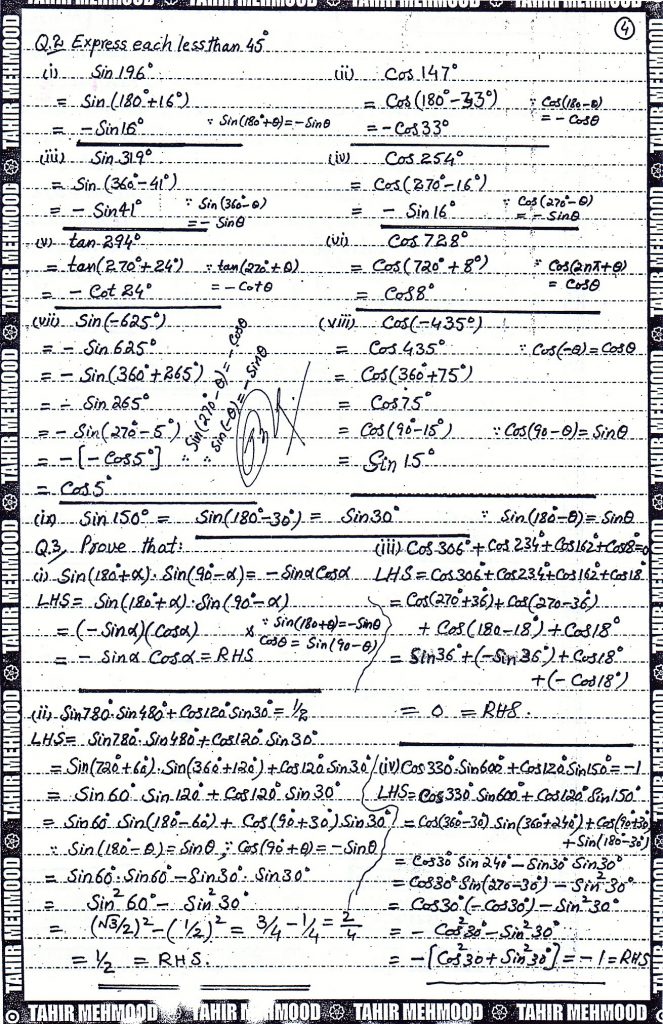 4
Q.2, Express each less than 45°
(i) Sin 196°
= Sin (180°+16°)
= - Sin16° ∵ Sin(180°+θ) = -Sinθ
(ii) Cos 147°
= Cos (180°-33°) ∵ Cos(180-θ)
= - Cos 33° = - Cosθ
(iii) Sin 319°
= Sin (360°-41°)
= - Sin41° ∵ Sin (360°-θ)
= - Sinθ
(iv) Cos 254°
= Cos(270°-16°)
= - Sin 16° ∵ Cos(270°-θ)
= - Sinθ
(v) tan 294°
= tan(270°+24°) ∵ tan(270+θ)
= - Cot 24° = - Cotθ
(vi) Cos 728°
= Cos(720°+8°) ∵ Cos(2nπ+θ)
= Cos8° = Cosθ
(vii) Sin(-625°)
= - Sin 625°
= - Sin(360°+265°)
= - Sin 265°
= - Sin(270°-5°)
= -[- Cos5°]
= Cos5°
∵ Sin(270°-θ) = - Cosθ
∵ Sin(-θ) = - Sinθ
(viii) Cos(-435°)
= Cos 435° ∵ Cos(-θ) = Cosθ
= Cos(360°+75°)
= Cos75°
= Cos(90-15°) ∵ Cos(90-θ) = Sinθ
= Sin 15°
(ix) Sin 150° = Sin(180°-30°) = Sin30° ∵ Sin(180°-θ) = Sinθ
Q.3, Prove that:
(i) Sin(180°+α). Sin(90-α) = - Sinα Cosα
LHS = Sin(180+α).Sin(90°-α)
= (-Sinα)(Cosα) ∵ Sin(180+θ) = -Sinθ
Cosθ = Sin(90-θ)
= - Sinα Cosα = RHS
(iii) Cos 306° + Cos 234° + Cos162° + Cos18° = 0
LHS = Cos306° + Cos234° + Cos162° + Cos18°
= Cos(270°+36°) + Cos(270-36°)
+ Cos(180-18°) + Cos18°
= Sin36° + (-Sin36°) + Cos18°
+ (- Cos18°)
= 0 = RHS.
(ii) Sin780° Sin480° + Cos120° Sin30° = 1/2
LHS = Sin780° Sin480° + Cos120° Sin30°
= Sin(720+60°).Sin(360°+120°) + Cos120° Sin30°
= Sin 60° Sin 120° + Cos120° Sin 30°
= Sin60° Sin(180°-60°) + Cos(90°+30°) Sin30°
∵ Sin(180°-θ) = Sinθ, ∵ Cos(90+θ) = -Sinθ
= Sin60°.Sin60° - Sin30°. Sin30°
= Sin² 60° - Sin² 30°
= (√3/2)² - (1/2)² = 3/4 - 1/4 = 2/4
= 1/2 = RHS.
(iv) Cos330° Sin600° + Cos120° Sin150° = -1
LHS = Cos330° Sin600° + Cos120° Sin150°
= Cos(360-30°) Sin(360+240°) + Cos(90+30)
+ Sin(180-30°)
= Cos30° Sin 240° - Sin30° Sin30°
= Cos30° Sin(270-30°) - Sin² 30°
= Cos30° (-Cos30°) - Sin² 30°
= - Cos² 30° - Sin² 30°
= -[Cos² 30 + Sin² 30°] = -1 = RHS
TAHIR MEHMOOD TAHIR MEHMOOD TAHIR MEHMOOD TAHIR MEHMOOD